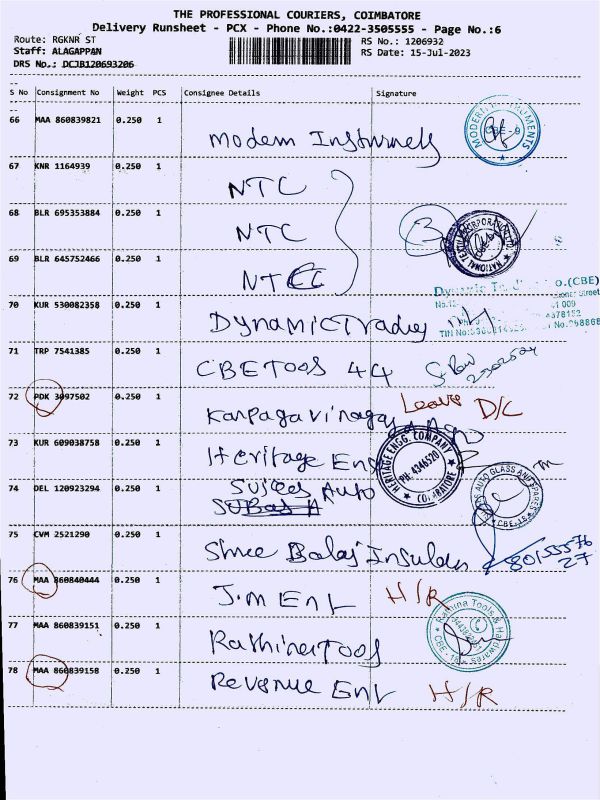 THE PROFESSIONAL COURIERS, COIMBATORE
Delivery Runsheet - PCX - Phone No.:0422-3505555 - Page No.:6
Route: RGKNR ST RS No.: 1206932
Staff: ALAGAPPAN RS Date: 15-Jul-2023
DRS No.: DCJB120693206
S No Consignment No Weight PCS Consignee Details Signature
66 MAA 860839821 0.250 1
Modern MODERN INSTRUMENTS CBE-9
67 KNR 1164939 0.250 1
NTC
68 BLR 695353884 0.250 1
NTC 3 NATIONAL
69 BLR 645752466 0.250 1
NTC
Dynamic (CBE)
70 KUR 530082358 0.250 1
Dynamic Trading TIN No:
71 TRP 7541385 0.250 1
CBE Tools 44
72 PDK 3097502 0.250 1
Karpagavinagar Agro Leave D/C
73 KUR 609038758 0.250 1
Heritage Eng HERITAGE ENGG. COMPANY PH: 4346520 COIMBATORE
74 DEL 120923294 0.250 1
Auto AUTO GLASS AND SPARES CBE-18
75 CVM 2521290 0.250 1
Shree Balaj Insulation
76 MAA 860840444 0.250 1
J.M Ent H/R
77 MAA 860839151 0.250 1
Rathina Tools Rathina Tools & Hardwares CBE-18
78 MAA 860839158 0.250 1
Revenue Ent H/R